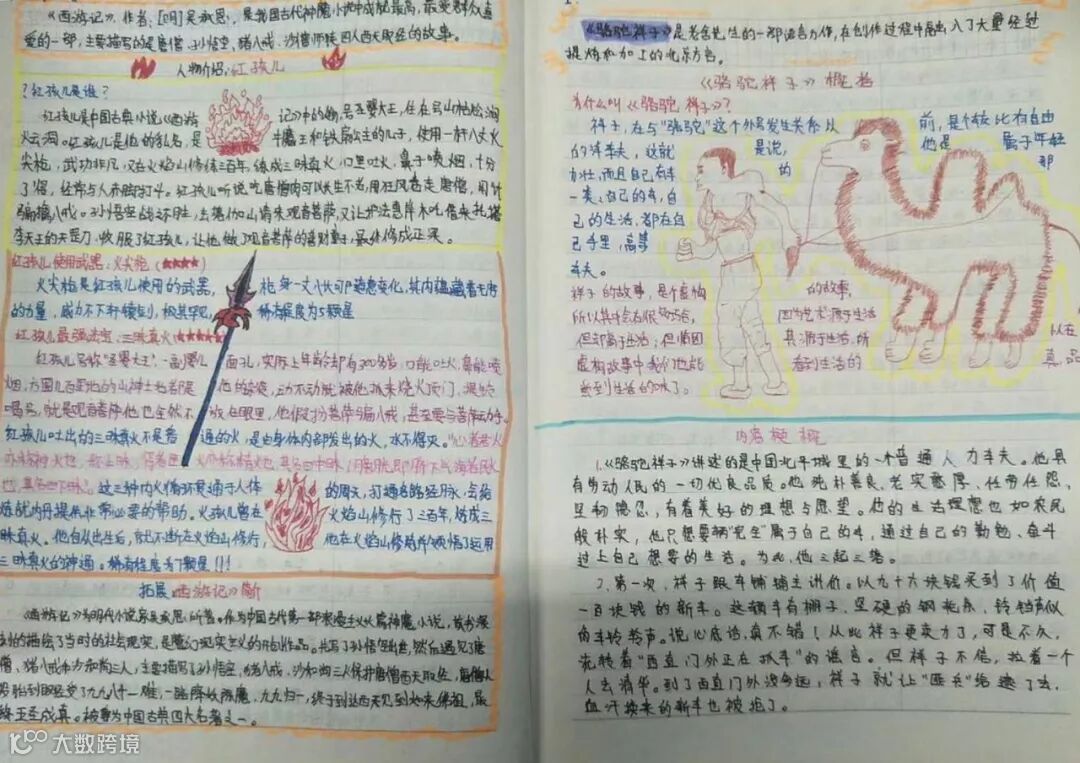 《西游记》,作者:[明]吴承恩,是我国古代神魔小说中成就最高,最受群众喜
爱的一部,主要描写的是唐僧、孙悟空、猪八戒、沙僧师徒四人西天取经的故事。
人物介绍:红孩儿
?红孩儿是谁?
红孩儿是中国古典小说《西游 记》中的人物,号圣婴大王,住在号山枯松涧
火云洞。红孩儿是他的乳名,是 牛魔王和铁扇公主的儿子,使用一杆八丈火
尖枪,武功非凡,又在火焰山修炼三百年,练成三昧真火,口里吐火,鼻子喷烟,十分
了得,经常与人赤脚打斗。红孩儿听说吃唐僧肉可以长生不老,用狂风卷走唐僧,用计
骗擒八戒。孙悟空战不胜,去落伽山请来观音菩萨,又让护法惠岸木吒借来托塔
李天王的天罡刀,收服了红孩儿,让他做了观音菩萨的善财童子,最终修成正果。
红孩儿使用武器:火尖枪(★★★★)
火尖枪是红孩儿使用的武器, 枪身一丈八长可随意变化,其内蕴藏着无穷
的力量,威力不下 稀有程度为5颗星
红孩儿最强法宝:三昧真火(★★★★★)
红孩儿号称“圣婴大王”,一副婴儿 面孔,实际上年龄却有300多岁,口能吐火,鼻能喷
烟,方圆几百里地的山神土地都是 他的奴役,动不动就被他抓来烧火顶门,提铃
喝号,就是观音菩萨他也全然不 放在眼里,他假扮菩萨骗八戒,甚至要与菩萨动手。
红孩儿吐出的三昧真火不是普 通的火,是由身体内部发出的火,水不得灭。“心者君火
这三种内火循环贯通于人体 的周天,打通各路经脉,会给
炼就内丹提供非常必要的帮助。火孩儿曾在 火焰山修行了三百年,炼成三
昧真火。他自从出生后,就已不断在火焰山修行, 他在火焰山修炼所领悟了运用
三昧真火的神通。稀有程度为7颗星!!!
拓展《西游记》简介
《西游记》为明代小说家吴承恩所著。作为中国古代第一部浪漫主义长篇神魔小说,该书深
刻的描绘了当时的社会现实,是魔幻现实主义的开创作品。先写了孙悟空出世,然后遇见了唐
僧、猪八戒和沙和尚三人,主要描写了孙悟空、猪八戒、沙和尚三人保护唐僧西天取经,唐僧从
投胎到取经受了九九八十一难,一路降妖除魔,九九归一,终于到达西天见到如来佛祖,最
终五圣成真。被誉为中国古典四大名著之一。
《骆驼祥子》是老舍先生的一部语言力作,在创作过程中融入了大量经过
提炼和加工的北京方言。
《骆驼祥子》概括
为什么叫《骆驼祥子》?
祥子,在与“骆驼”这个外号发生关系以 前,是个较比有自由
的洋车夫,这就 是说, 他是 属于年轻
力壮,而且自己有车 的 那
一类:自己的车,自
己的生活,都在自
己手里,高等
车夫。
祥子的故事,是个虚构 的故事,
所以其中会有很多巧合, 因为艺术源于生活
但却高于生活;但简因 其源于生活,所 以在
虚构故事中我们也能 看到生活的 真,品
尝到生活的味了。
内容梗概
1.《骆驼祥子》讲述的是中国北平城里的一个普通人力车夫。他具
有劳动人民的一切优良品质。他纯朴善良、老实憨厚、任劳任怨、
坚韧隐忍,有着美好的理想与愿望。他的生活理想也如农民
般朴实,他只想要辆“完全”属于自己的车,通过自己的勤勉、奋斗
过上自己想要的生活。为此,他三起三落。
2.第一次,祥子跟车铺铺主讲价。以九十六块钱买到了价值
一百块钱的新车。这辆车有棚子,坚硬的钢轮条,铃铛声似
向车铃声。说心底话,真不错!从此祥子更卖力了,可是不久,
流转着“西直门外正在抓车”的谣言。但祥子不信,拉着一个
人去清华。到了西直门外没多远,祥子就让“匪兵”给逮了去,
血汗换来的新车也被抢了。
大数跨境